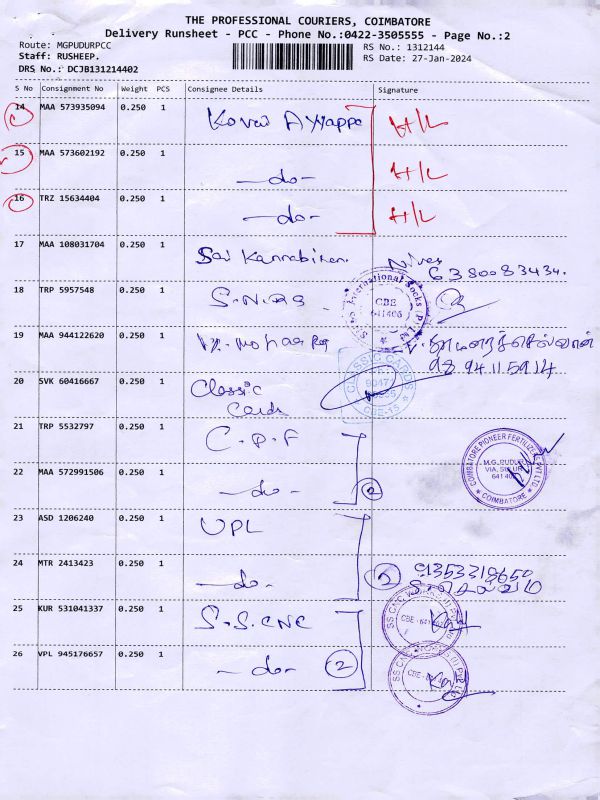 THE PROFESSIONAL COURIERS, COIMBATORE
Delivery Runsheet - PCC - Phone No.:0422-3505555 - Page No.:2
Route: MGPUDURPCC
RS No.: 1312144
Staff: RUSHEEP.
RS Date: 27-Jan-2024
DRS No.: DCJB131214402
S No Consignment No Weight PCS Consignee Details Signature
14 MAA 573935094 0.250 1 Kovai Ayyappa H/L
15 MAA 573602192 0.250 1 —do— H/L
16 TRZ 15634404 0.250 1 —do— H/L
17 MAA 108031704 0.250 1 Sai 6380083434.
18 TRP 5957548 0.250 1 International Socks CBE 641406
19 MAA 944122620 0.250 1 9894115914
20 SVK 60416667 0.250 1 Classic Cards CLASSIC CARDS CBE-15
21 TRP 5532797 0.250 1 C.P.F
COIMBATORE PIONEER FERTILIZERS PVT LTD
M.G. PUDUR
VIA, SULUR
COIMBATORE
22 MAA 572991506 0.250 1 —do— 2
23 ASD 1206240 0.250 1 UPL
24 MTR 2413423 0.250 1 —do— 2
25 KUR 531041337 0.250 1 S.S.CNC
26 VPL 945176657 0.250 1 —do— 2